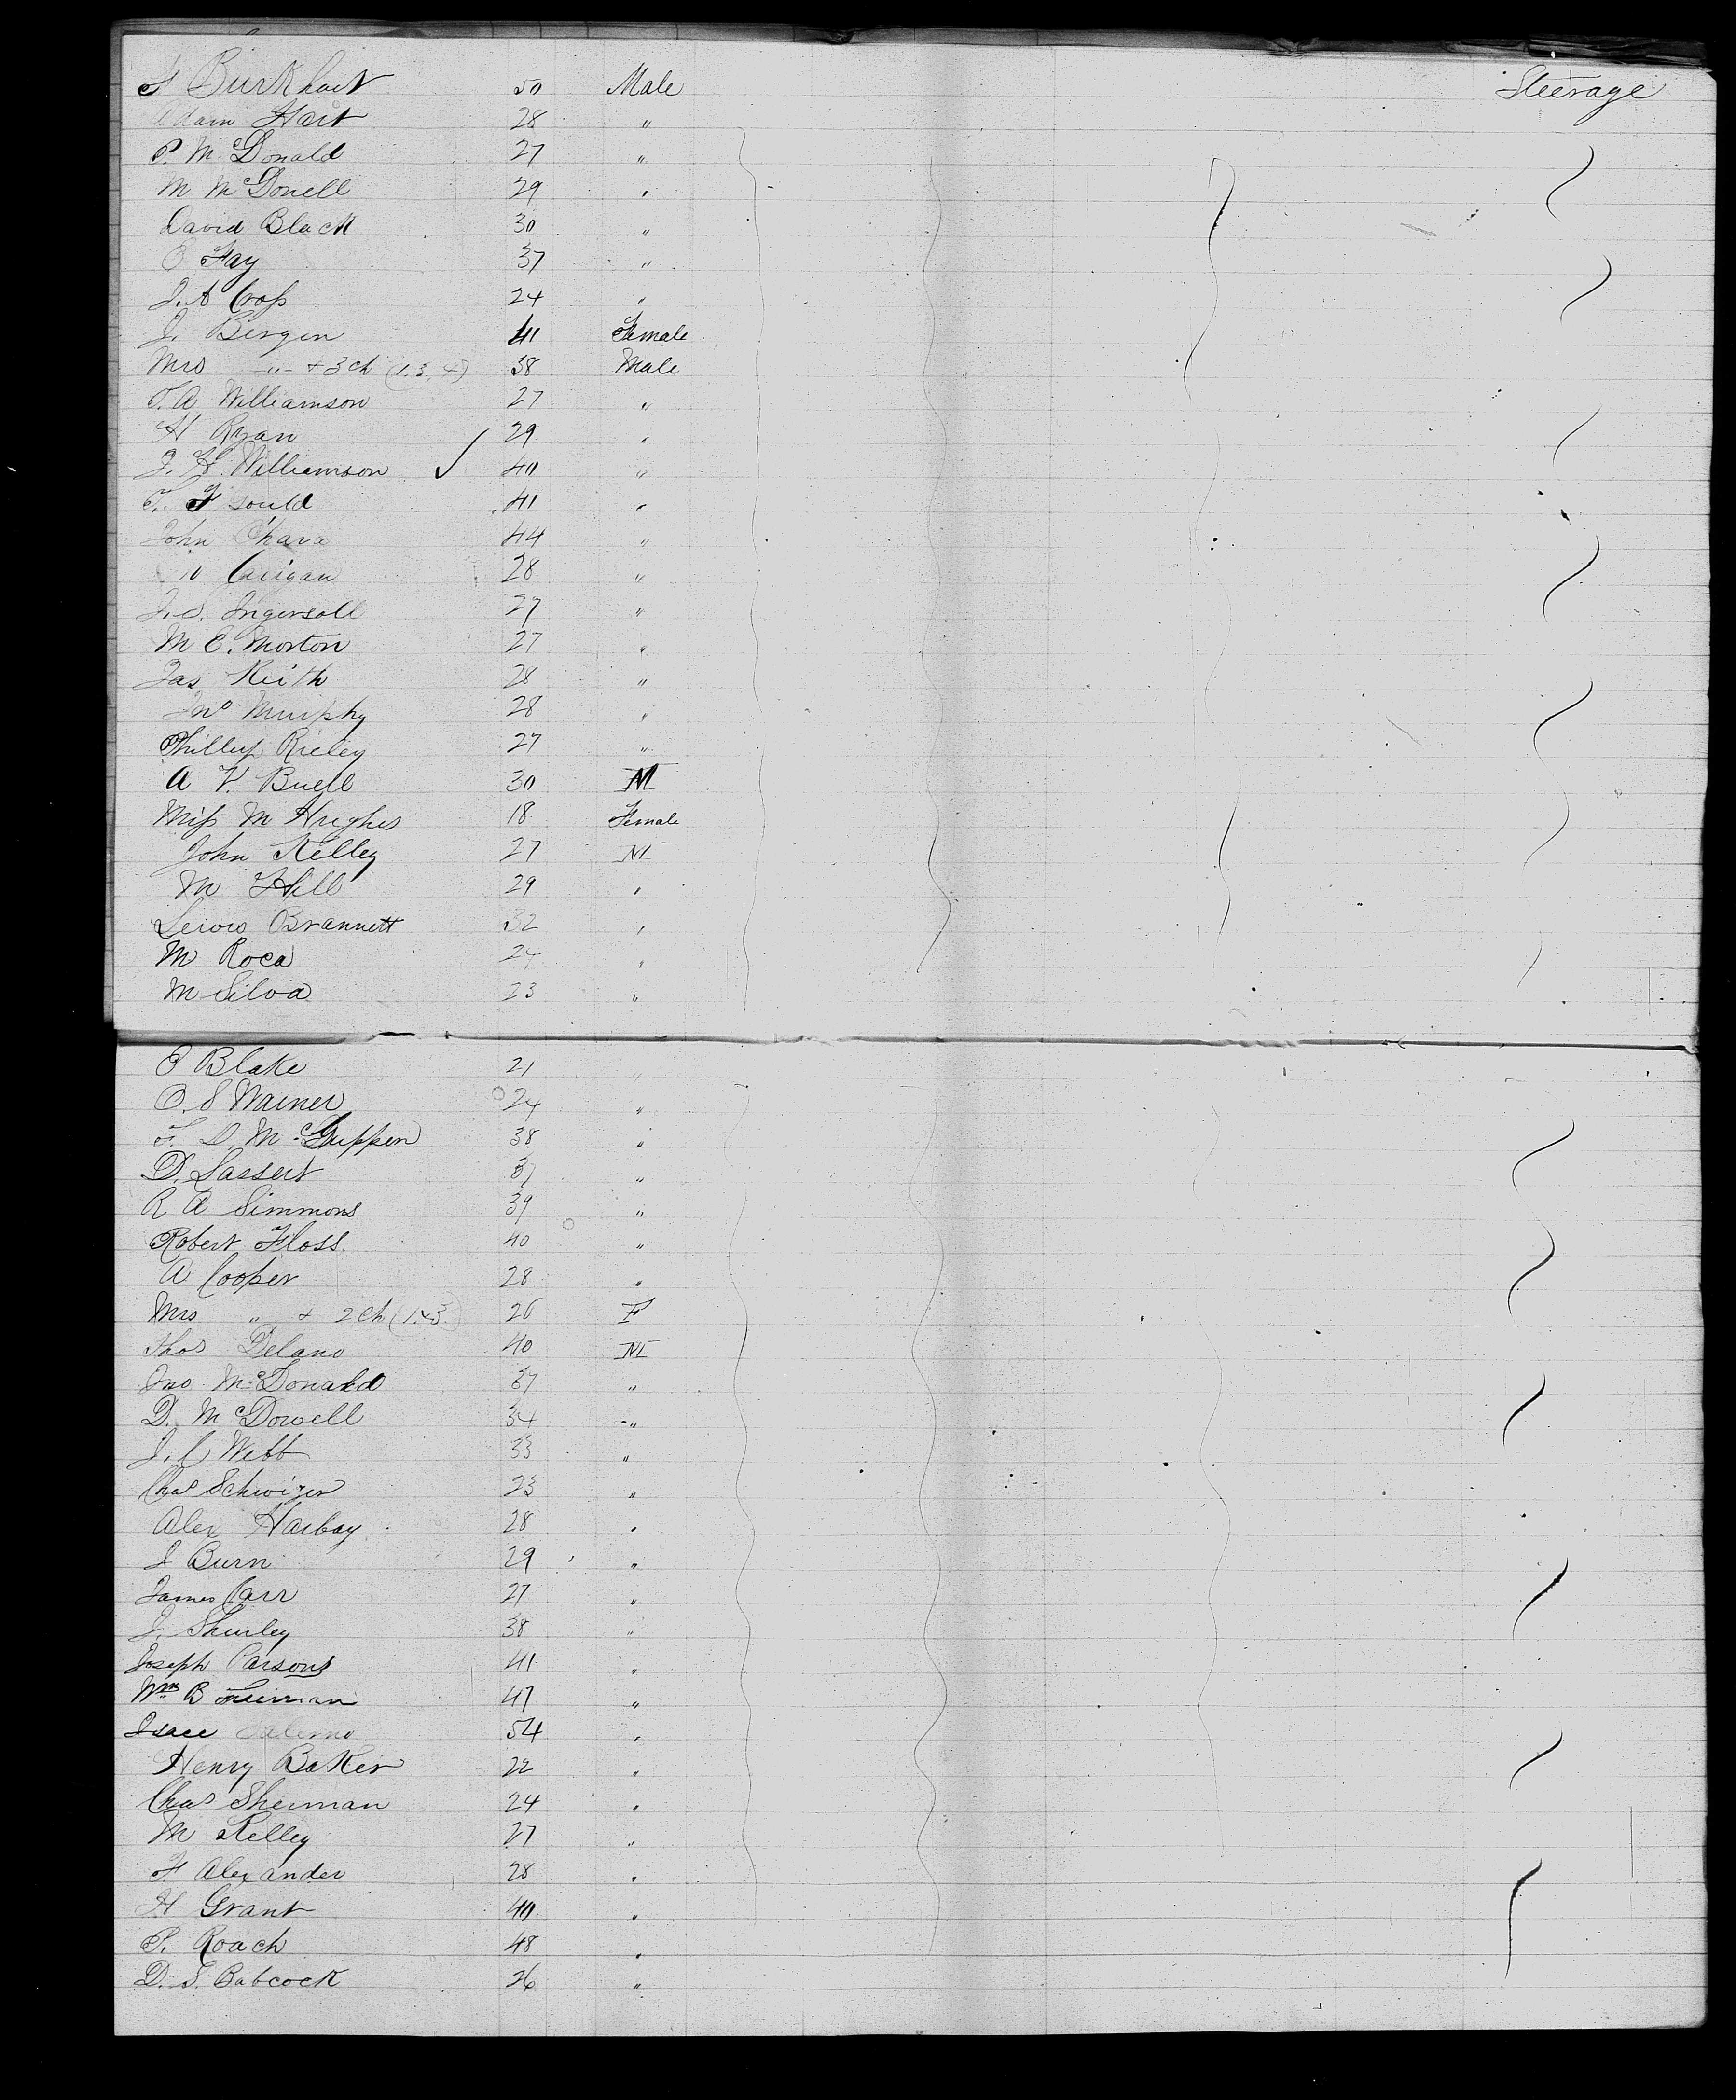 Burkhart 50 Male Steerage
Adam Hart 28 "
P. McDonald 27 "
M McDonell 29 "
David Black 30 "
Fay 37 "
J. A Cross 24 "
J. Bergen 41 Female
Mrs -"- + 3 ch (1.3.4) 38 Male
T. A Williamson 27 "
H Ryan 29 "
J. H. Williamson ✓ 40 "
T. F Gould 41 "
John Ohara 44 "
Carigan 28 "
Ingersoll 27 "
M C. Morton 27 "
Jas Keith 28 "
Jno Murphy 28 "
Phillip Rieley 27 "
A V. Buell 30 M
Miss M Hughes 18 Female
John Kelley 27 M
M Hill 29 "
Lewis Brannett 32 "
M Roca 24 "
M Silva 23 "
E Blake 21 "
O. S Warner 24 "
McGuppen 38 "
D. Sassert 37 "
R A Simmons 39 "
Robert Floss 40 "
A Cooper 28 "
Mrs " + 2 ch (1.&3) 26 F
Thos Delano 40 M
Jno McDonald 37 "
D. McDowell 34 "
J. C Webb 33 "
Chas Schwizer 23 "
Alex Harbay 28 "
J Burn 29 "
James Carr 27 "
J. Shurley 38 "
Joseph Parsons 41 "
Wm B 47 "
Isace Salerno 54 "
Henry Baker 22 "
Chas Sherman 24 "
M Kelley 27 "
F Alexander 28 "
H Grant 40 "
P. Roach 48 "
D. S. Babcock 26 "